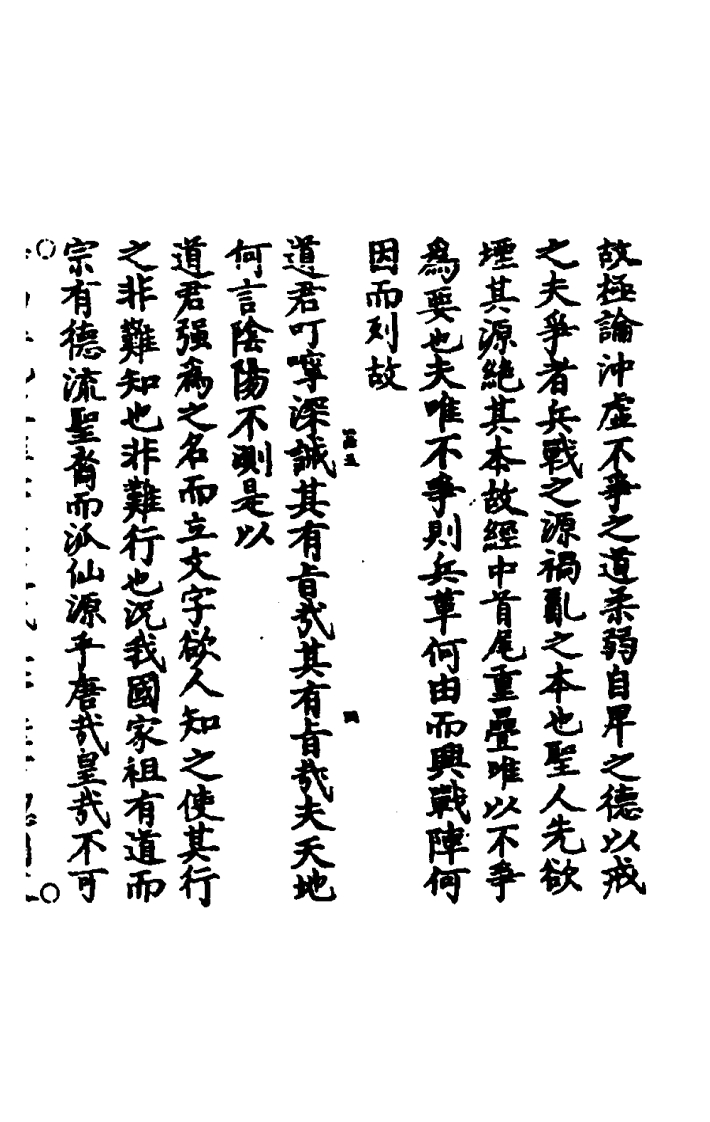 故極論沖虛不爭之道柔弱自卑之德以戒
之夫爭者兵戰之源禍亂之本也聖人先欲
堙其源絶其本故經中首尾重疊唯以不爭
爲要也夫唯不爭則兵革何由而興戰陣何
因而列故
道君叮嚀深誠其有旨哉其有旨哉夫天地
何言陰陽不測是以
道君强爲之名而立文字欲人知之使其行
之非難知也非難行也況我國家祖有道而
宗有德流聖裔而派仙源乎唐哉皇哉不可